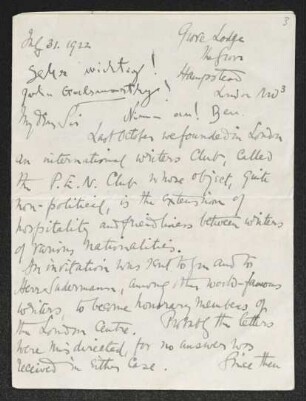 3
July 31. 1922
Grove Lodge
The Grove
Hampstead
London NW3
Sehr wichtig!
John Galsworthy!
My Dear Sir
Last October we founded in London
an international writers Club, called
the P.E.N. Club whose object, quite
non-political, is the extension of
hospitality and friendliness between writers
of various nationalities.
An invitation was sent to you and to
Herr Sudermann, among other world-famous
writers, to become honorary members of
the London Centre. Probably the letters
were misdirected, for no answer was
received in either case. Since then